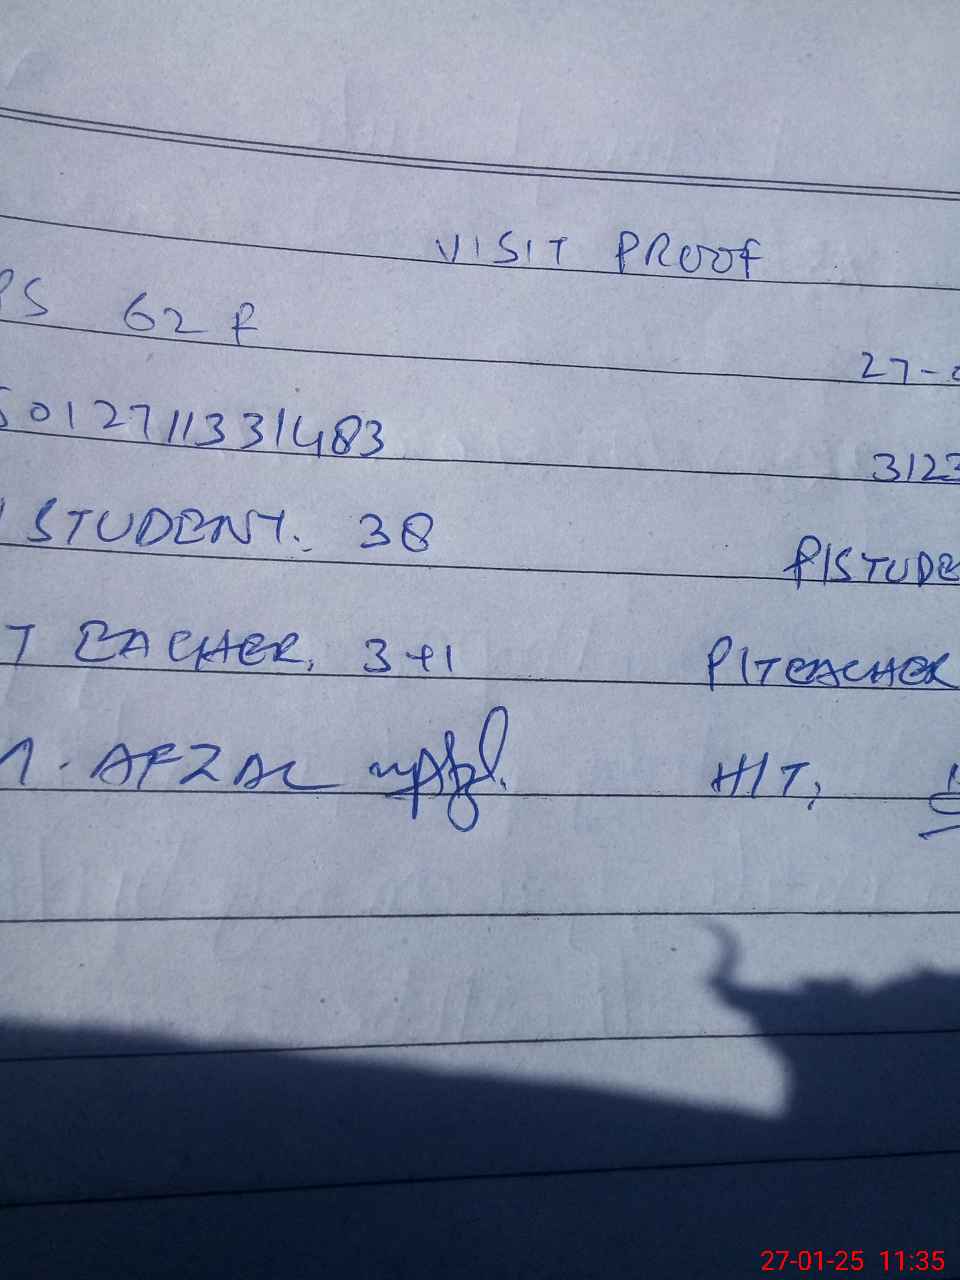 VISIT PROOF
PS 62 F
27-0
5012711331483
3123
STUDENT. 38
P/STUDE
TEACHER. 3+1
P/TEACHER
M. AFZAL
H/T,
27-01-25 11:35